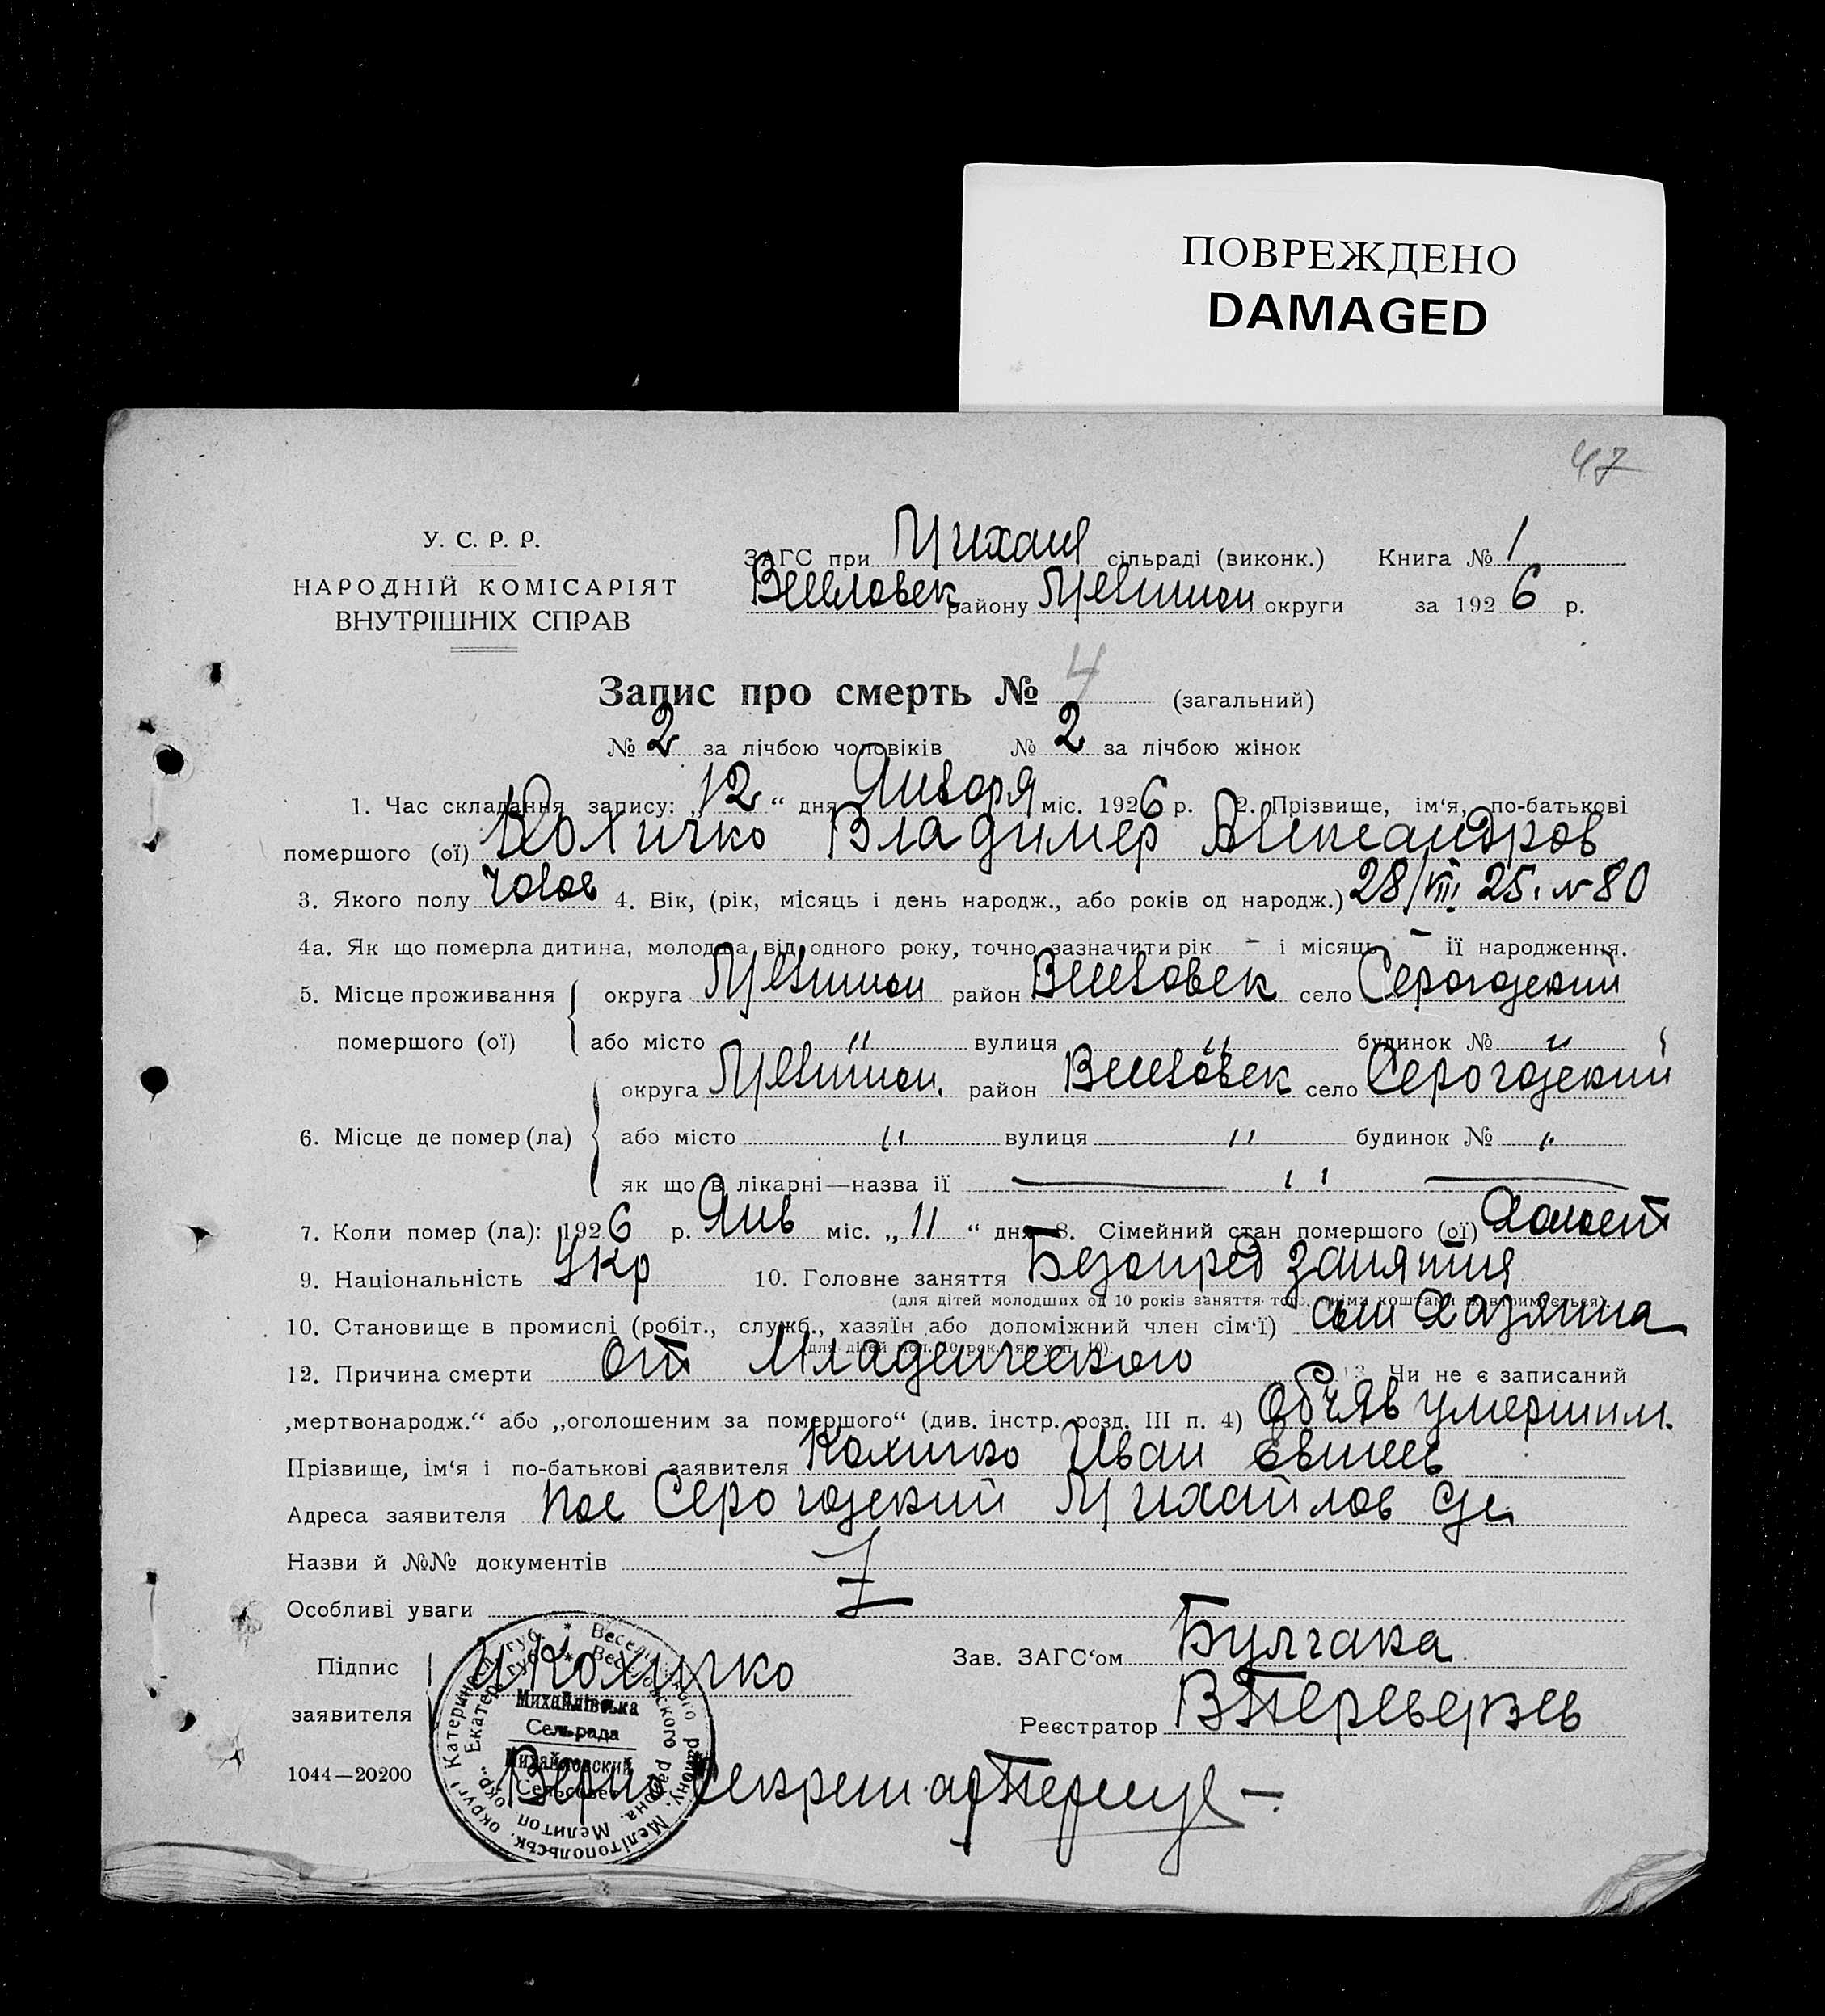 ПОВРЕЖДЕНО
DAMAGED
47
У. С. Р. Р.
НАРОДНІЙ КОМІСАРІЯТ
ВНУТРІШНІХ СПРАВ
ЗАГС при Михайл сільраді (виконк.) Книга № 1
Веселовек району Мелитоп округи за 1926 р.
Запис про смерть № 4 (загальний)
№ 2 за лічбою чоловіків № 2 за лічбою жінок
1. Час складання запису: „12“ дня Января міс. 1926 р. 2. Прізвище, ім‘я, по-батькові
помершого (ої) Кохичко Владимер Александров
3. Якого полу Чолов 4. Вік, (рік, місяць і день народж., або років од народж.) 28/VIII 25. № 80
4а. Як що померла дитина, молодша від одного року, точно зазначити рік – і місяць – ії народження.
5. Місце проживання округа Мелитоп район Веселовек село Серогозский
помершого (ої) або місто " вулиця " будинок № "
округа Мелитоп. район Веселовек село Серогозский
6. Місце де помер (ла) або місто " вулиця " будинок № "
як що в лікарні—назва ії — " —
7. Коли помер (ла): 1926 р. Янв міс. „11“ дня 8. Сімейний стан помершого (ої) Холост
9. Національність Укр 10. Головне заняття Безопред занятия
(для дітей молодших од 10 років заняття того, чіїми коштами вони утримується).
10. Становище в промислі (робіт., служб., хазяїн або допоміжний член сім‘ї) сын Хазяина
(для дітей мол. 10 рок. як у п. 10).
12. Причина смерти от Младенческого 13. Чи не є записаний
„мертвонародж.“ або „оголошеним за помершого“ (див. інстр. розд. III п. 4) объяв умершим.
Прізвище, ім‘я і по-батькові заявителя Кохичко Иван
Адреса заявителя пос Серогозский Михайлов
Назви й №№ документів
Особливі уваги
Підпис
заявителя
И Кохичко
Зав. ЗАГС‘ом Булгака
Реєстратор В Переверзев
1044—20200
Михайлівська
Сельрада
Михайловский
Сельсовет
Верно Секретар